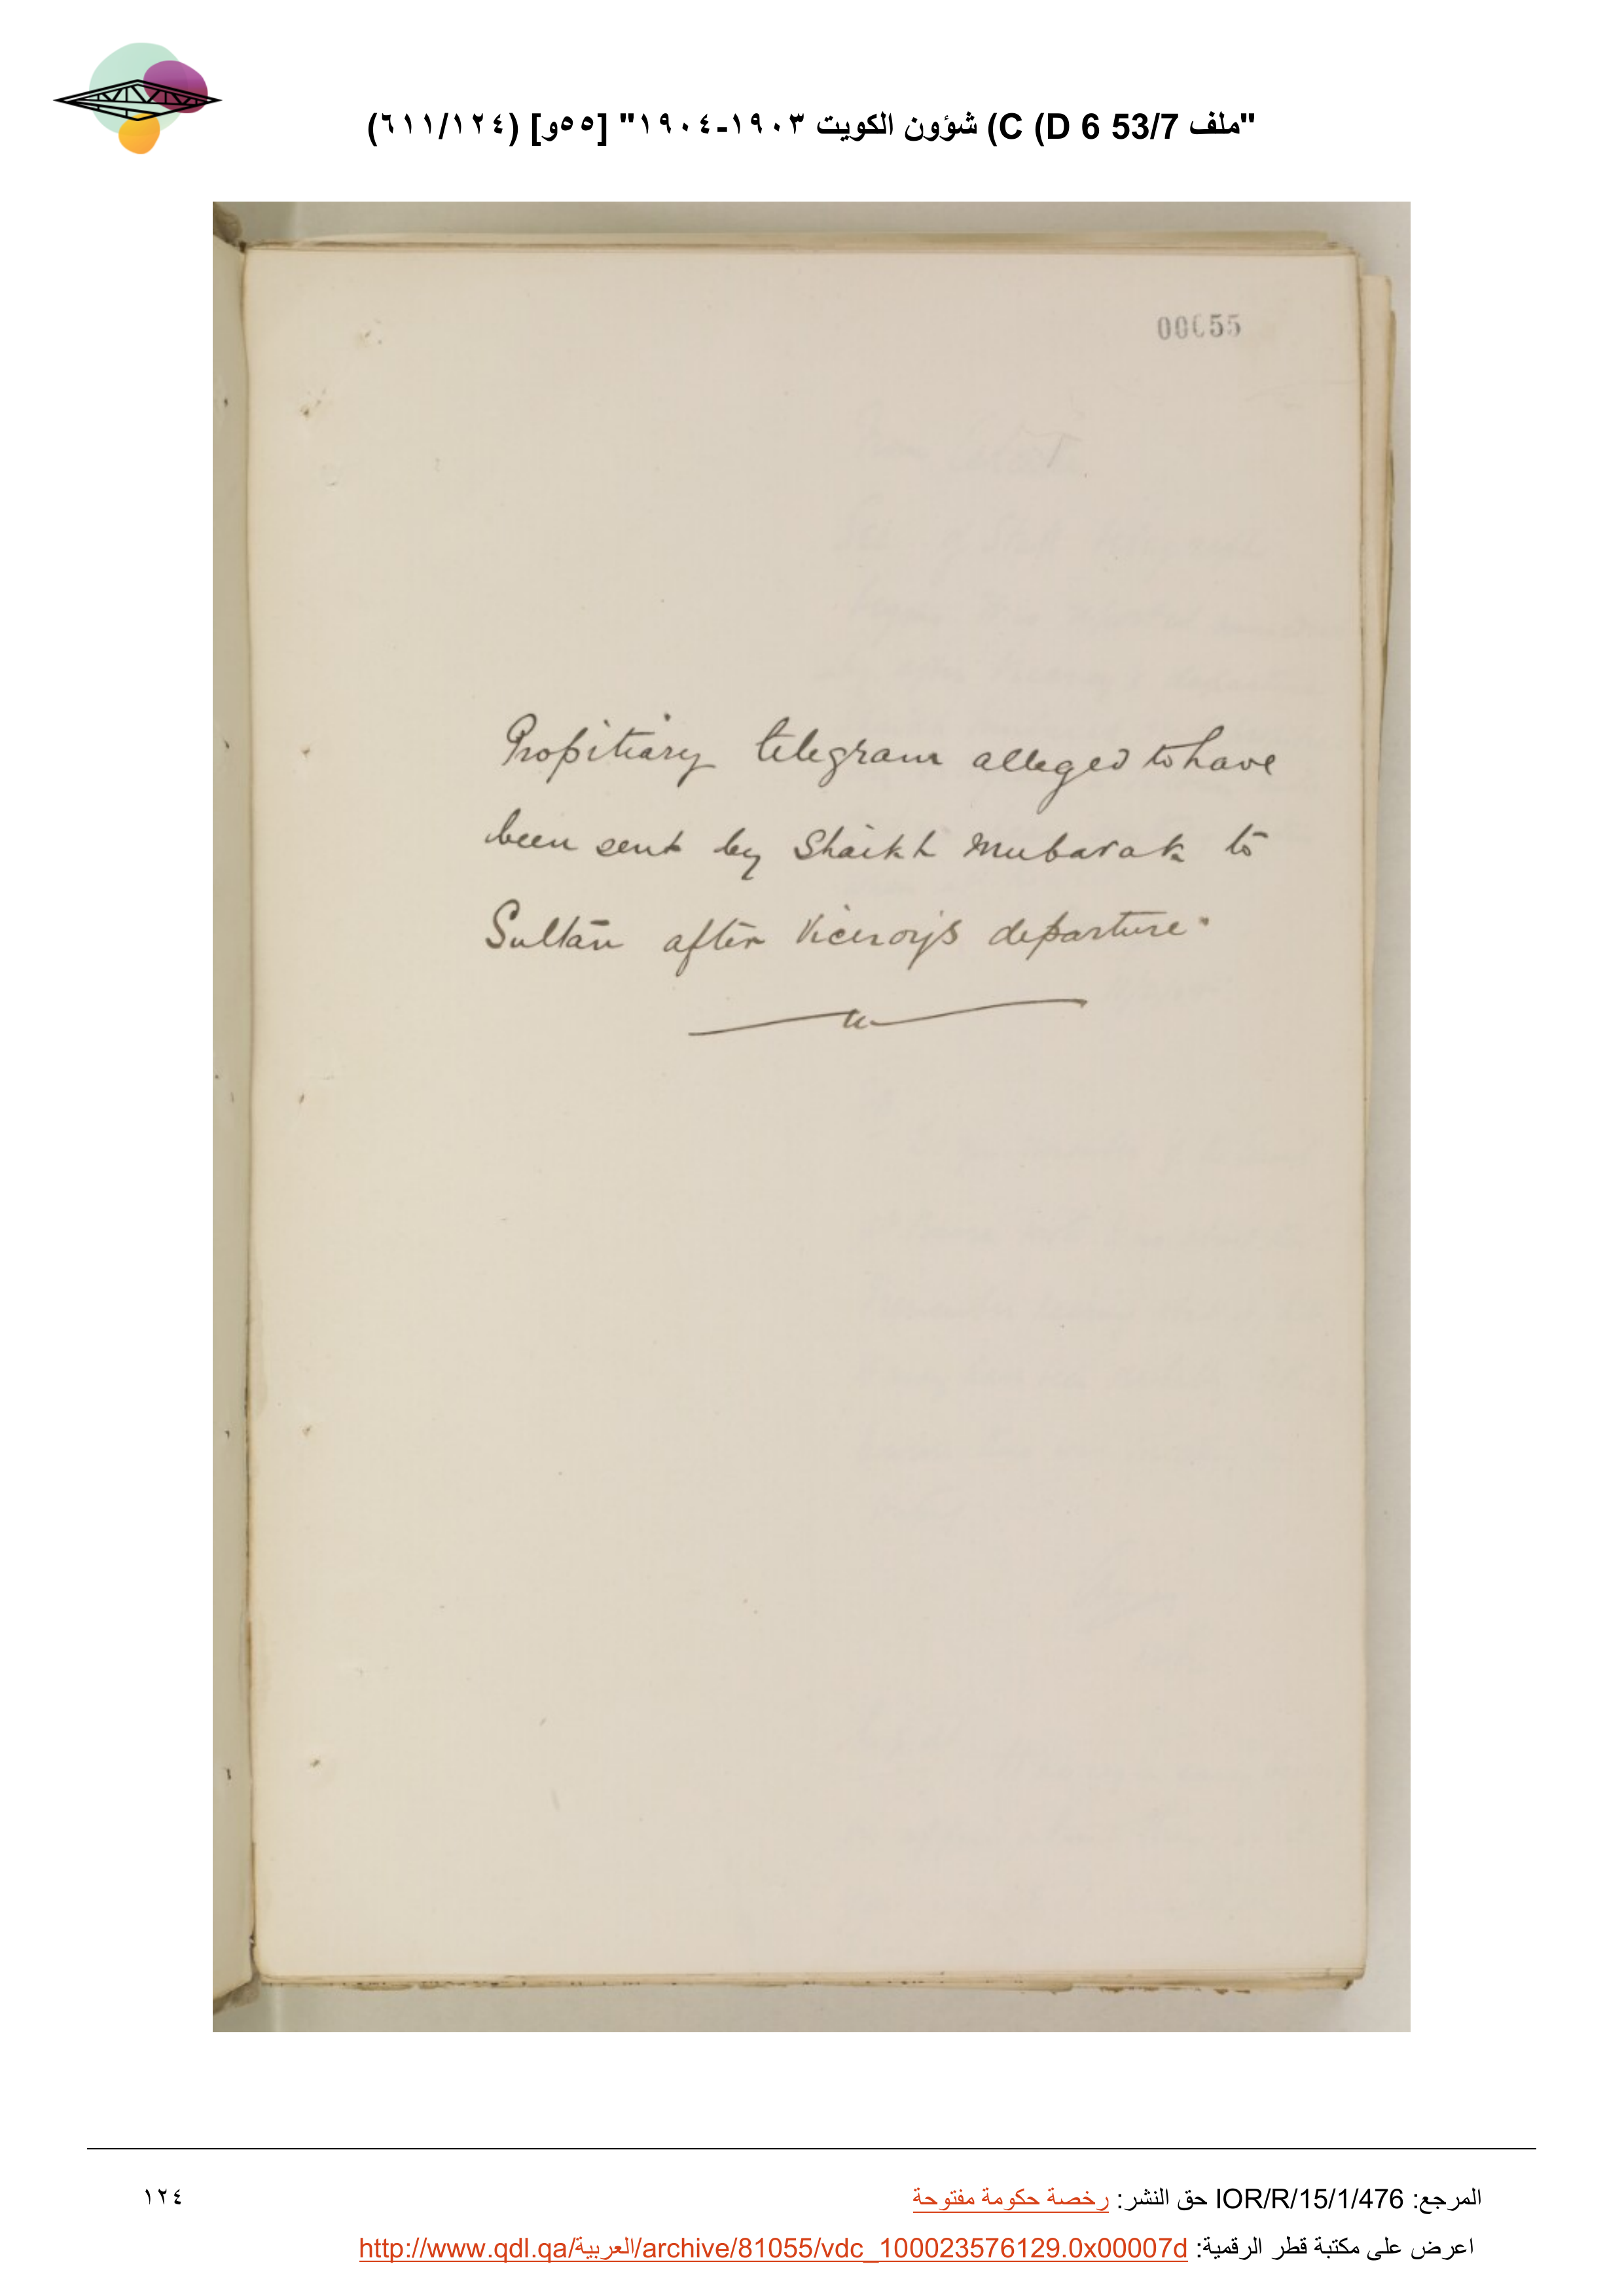 "ملف 53/7 D 6) C) شؤون الكويت ١٩٠٣-١٩٠٤" [٥٥و] (٦١١/١٢٤)
00055
Propitiary telegram alleged to have
been sent by Shaikh Mubarak to
Sultan after Viceroy's departure.
المرجع: IOR/R/15/1/476 حق النشر: رخصة حكومة مفتوحة
١٢٤
اعرض على مكتبة قطر الرقمية: http://www.qdl.qa/العربية/archive/81055/vdc_100023576129.0x00007d